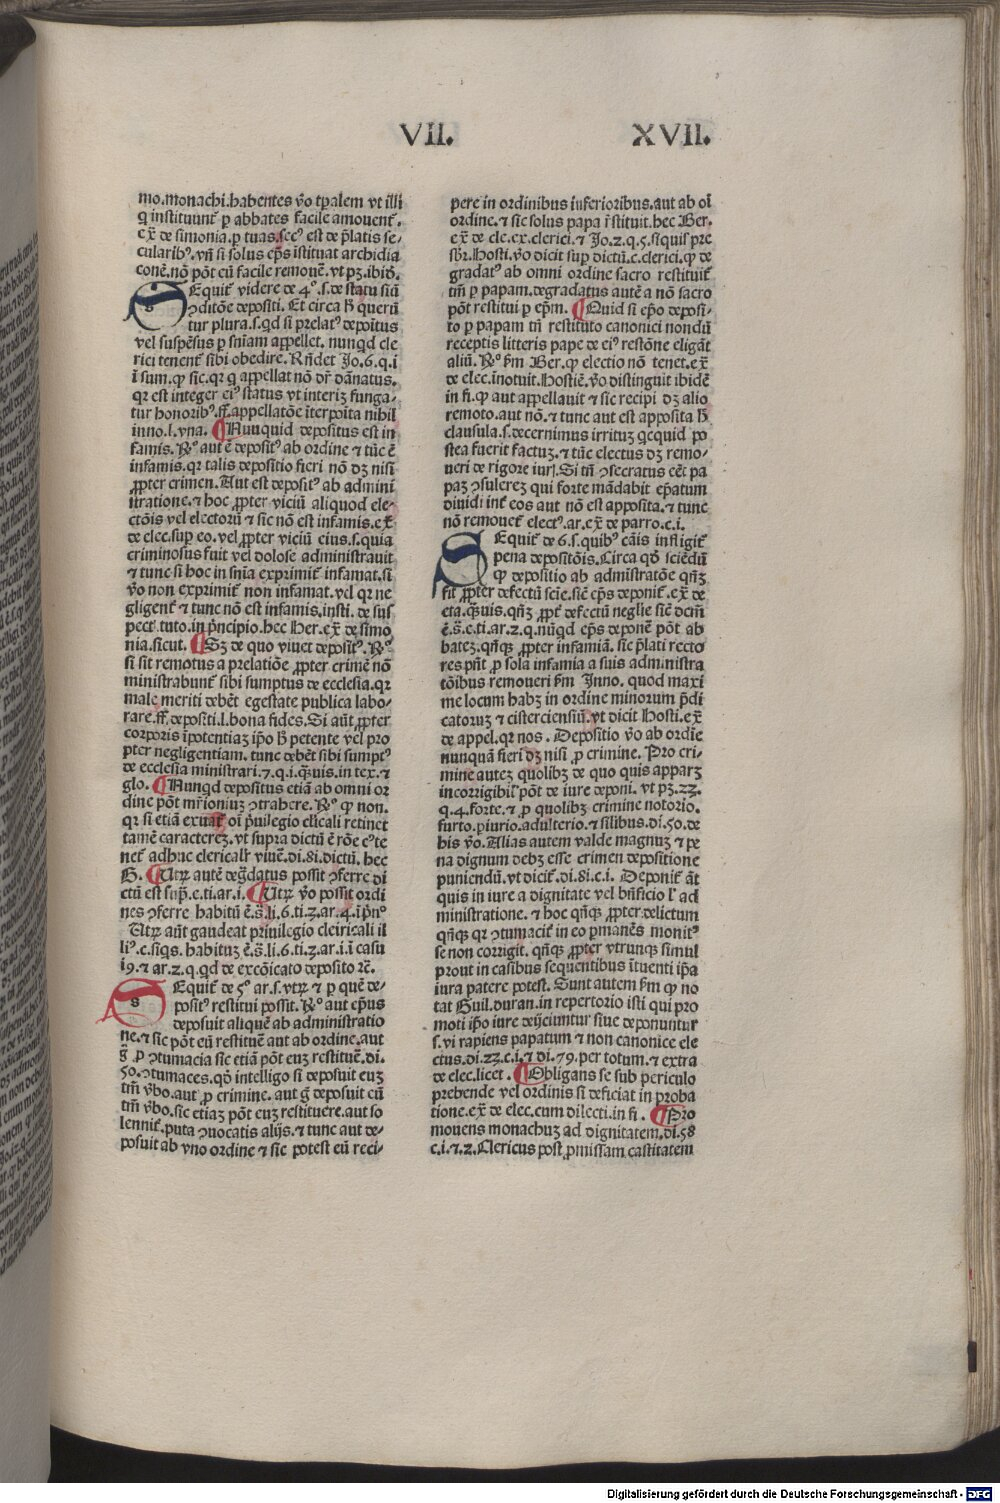 VII. XVII.
mo.monachi.habentes v̄o tp̄alem vt illi
q̄ instituunt̄ ꝑ abbates facile amouent̄.
ex̄ de simonia.ꝑ tuas.secꝰ est de p̄latis se-
cularibꝰ.vn̄ si solus ep̄s īstituat archidia
conē.nō pōt eū facile remouē.vt pꝫ.ibid̄.
SEquit̄ videre de 4º.s.de statu siū
ↄditiōe depositi. Et circa h̄ querū
tur plura.s.qd si prelatꝰ depoītus
vel suspēsus ꝑ sniam appellet. nunqd cle
rici tenent̄ sibi obedire. Rn̄det Jo.6.q.i
ī sum.ꝙ sic.qr q appellat nō dr̄ dānatus.
qr est integer eiꝰ status vt interiꝫ funga-
tur honoribꝰ.ff.appellatōe īterpoīta nihil
inno.l.vna. ¶Nunquid depositus est in
famis. Rº aut ē depositꝰ ab ordine ⁊ tūc ē
infamis.qr talis depositio fieri nō dꝫ nisi
ꝓpter crimen. Aut est depositꝰ ab admini
stratione.⁊ hoc ꝓpter viciū aliquod ele-
ctōis vel electorū ⁊ sic nō est infamis.ex̄
de elec.suꝑ eo.vel ꝓpter viciū eius.s.quia
criminosus fuit vel dolose administrauit
⁊ tunc si hoc in sn̄ia exprimit̄ infamat.si
v̄o non exprimit̄ non infamat.vel qr ne
gligent̄ ⁊ tunc nō est infamis.insti. de sus
pect̄.tuto.in p̄ncipio.hec Her.ex̄ de simo
nia.sicut. ¶Sꝫ de quo viuet depositꝰ. Rº
si sit remotus a prelatiōe ꝓpter crimē nō
ministrabunt̄ sibi sumptus de ecclesia.qr
male meriti debēt egestate publica labo-
rare.ff.depositi.l.bona fides.Si aūt ꝓpter
corporis īpotentiaꝫ ip̄o h̄ petente vel pro
pter negligentiam. tunc debēt sibi sumptꝰ
de ecclesia ministrari.7.q.i.q̄uis.in tex.⁊
glo. ¶Nunqd depositus etiā ab omni or
dine pōt mr̄ioniuꝫ ↄtrahere. Rº ꝙ non.
qr si etiā exuat̄ oī p̄uilegio cl̄icali retinet
tamē caractereꝫ.vt supra dictū ē rōe cꝰ te
net̄ adhuc clericalr̄ viuē.di.8i.dictū. hec
G. ¶Utꝝ autē deḡdatus possit ↄferre di
ctū est sup̄.e.ti.ar.i. ¶Utꝝ v̄o possit ordi
nes ↄferre habitū ē.s̄.li.6.ti.2.ar.4.ī p̄nº
Utꝝ aūt gaudeat priuilegio clericali il
liꝰ.c.siqs. habituꝫ ē.s̄.li.6.ti.2.ar.i.ī casu
i9.⁊ ar.2.q.qd de excōicato deposito rc̄.
SEquit̄ de 5º ar.s.vtꝝ ⁊ ꝑ quē de-
positꝰ restitui possit. Rº aut ep̄us
deposuit aliquē ab administratio
ne.⁊ sic pōt eū restituē aut ab ordine.aut
ḡ ꝑ ↄtumacia sic etiā pōt euꝫ restituē.di.
50.ↄtumaces.qd̄ intelligo si deposuit euꝫ
tm̄ v̄bo.aut ꝑ crimine. aut ḡ deposuit eū
tm̄ v̄bo.sic etiaꝫ pōt euꝫ restituere.aut so
lennit̄.puta ↄuocatis alijs.⁊ tunc aut de-
posuit ab vno ordine ⁊ sic potest eū reci-
pere in ordinibus inferioribus.aut ab oī
ordine.⁊ sic solus papa īstituit.hec Ber.
ex̄ de cle.ex.clerici.⁊ Jo.2.q.5.siquis pre
sbr̄.Hosti.v̄o dicit suꝑ dictū.c.clerici.ꝙ de
gradatꝰ ab omni ordine sacro restituit̄
tm̄ ꝑ papam.degradatus autē a nō sacro
pōt restitui ꝑ ep̄m. ¶Quid si ep̄o deposi-
to ꝑ papam tn̄ restituto canonici nondū
receptis litteris pape de eiꝰ restōne eligāt
aliū. Rº fm̄ Ber.ꝙ electio nō tenet.ex̄
de elec.inotuit.Hostiē.v̄o distinguit ibidē
in fi.ꝙ aut appellauit ⁊ sic recipi dꝫ alio
remoto.aut nō.⁊ tunc aut est apposita h̄
clausula.s.decernimus irrituꝫ qcquid po
stea fuerit factuꝫ.⁊ tūc electus dꝫ remo-
ueri de rigore iurī.Si tn̄ ↄsecratus eēt pa
paꝫ ↄsulereꝫ qui forte mādabit ep̄atum
diuidi int̄ eos aut nō est apposita.⁊ tunc
nō remouet̄ electꝰ.ar.ex̄ de parro.c.i.
SEquit̄ de 6.s.quibꝰ cāis infligit̄
pena depositōis.Circa qd̄ sciēdū
ꝙ depositio ab admistratōe qn̄ꝫ
fit ꝓpter defectū scie.sic ep̄s deponit̄.ex̄ de
eta.q̄uis.qn̄ꝫ ꝓpt̄ defectū neglie siē dcm̄
ē.s̄.e.ti.ar.2.q.nūqd ep̄s deponē pōt ab
bateꝫ.qn̄qꝫ ꝓpter infamiā. sic p̄lati recto
res pn̄t ꝑ sola infamia a suis administra
tōibus remoueri fm̄ Inno. quod maxi
me locum habꝫ in ordine minorum p̄di
catoruꝫ ⁊ cisterciensiū.vt dicit Hosti.ex̄
de appel.qr nos . Depositio v̄o ab ordīe
nunquā fieri dꝫ nisi ꝑ crimine. Pro cri-
mine auteꝫ quolibꝫ de quo quis apparꝫ
incorrigibil̄ pōt de iure deponi. vt pꝫ.22.
q.4.forte.⁊ ꝑ quolibꝫ crimine notorio.
furto.ꝑiurio.adulterio.⁊ silibus.di.50.de
his v̄o.Alias autem valde magnuꝫ ⁊ pe
na dignum debꝫ esse crimen depositione
puniendū.vt dicit̄.di.8i.c.i. Deponit̄ āt
quis in iure a dignitate vel bn̄ficio l̄ ad
ministratione. ⁊ hoc qn̄qꝫ ꝓpter delictum
qn̄qꝫ qr ↄtumacit̄ in eo ꝑmanēs monitꝰ
se non corrigit. qn̄qꝫ ꝓpter vtrunqꝫ simul
prout in casibus sequentibus īuenti ip̄a
iura patere potest. Sunt autem fm̄ ꝙ no
tat Guil.duran.in repertorio isti qui pro
moti ip̄o iure deijciuntur siue deponuntur
s.vi rapiens papatum ⁊ non canonice ele
ctus.di.22.c.i.⁊ di.79.per totum.⁊ extra
de elec.licet . ¶Obligans se sub periculo
prebende vel ordinis si deficiat in proba
tione.ex̄ de elec.cum dilecti.in fi . ¶Pro
mouens monachuꝫ ad dignitatem.di.58
c.i.⁊.2. Clericus post ꝓmissam castitatem
Digitalisierung gefördert durch die Deutsche Forschungsgemeinschaft - DFG